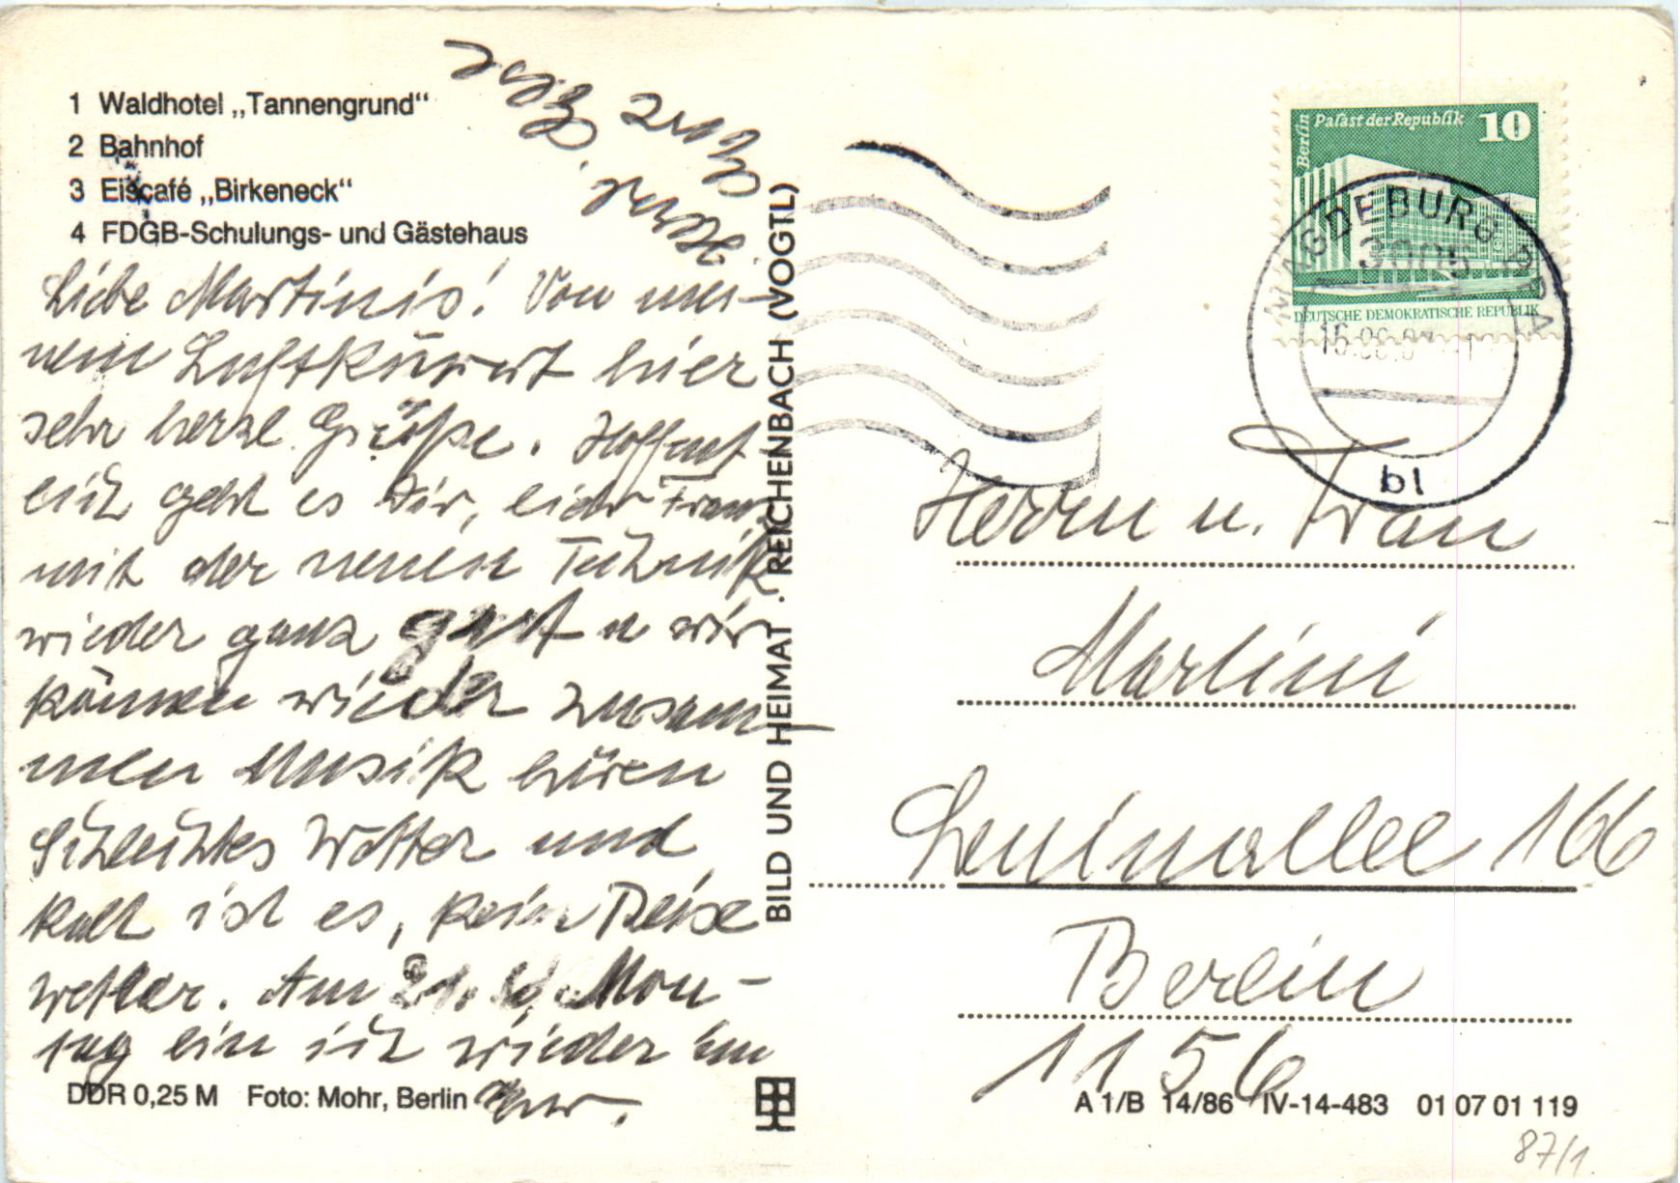 1 Waldhotel „Tannengrund“
2 Bahnhof
3 Eiscafé „Birkeneck“
4 FDGB-Schulungs- und Gästehaus
Liebe Martinis! Von mei-
nem Luftkurort hier
sehr herzl. Grüße. Hoffent-
lich geht es Dir, lieber Franz
mit der neuen Technik
wieder ganz gut u wir
können wieder zusam-
men Musik hören
Schlechtes Wetter und
kalt ist es, kein Reise
wetter. Am 21. Mon-
tag bin ich wieder
Herzl.
Eure
BILD UND HEIMAT REICHENBACH (VOGTL)
DDR 0,25 M Foto: Mohr, Berlin
Berlin Palast der Republik 10
DEUTSCHE DEMOKRATISCHE REPUBLIK
MAGDEBURG
bl
Herrn u. Frau
Martini
Leninallee 166
Berlin
1156
A 1/B 14/86 IV-14-483 01 07 01 119
87/1